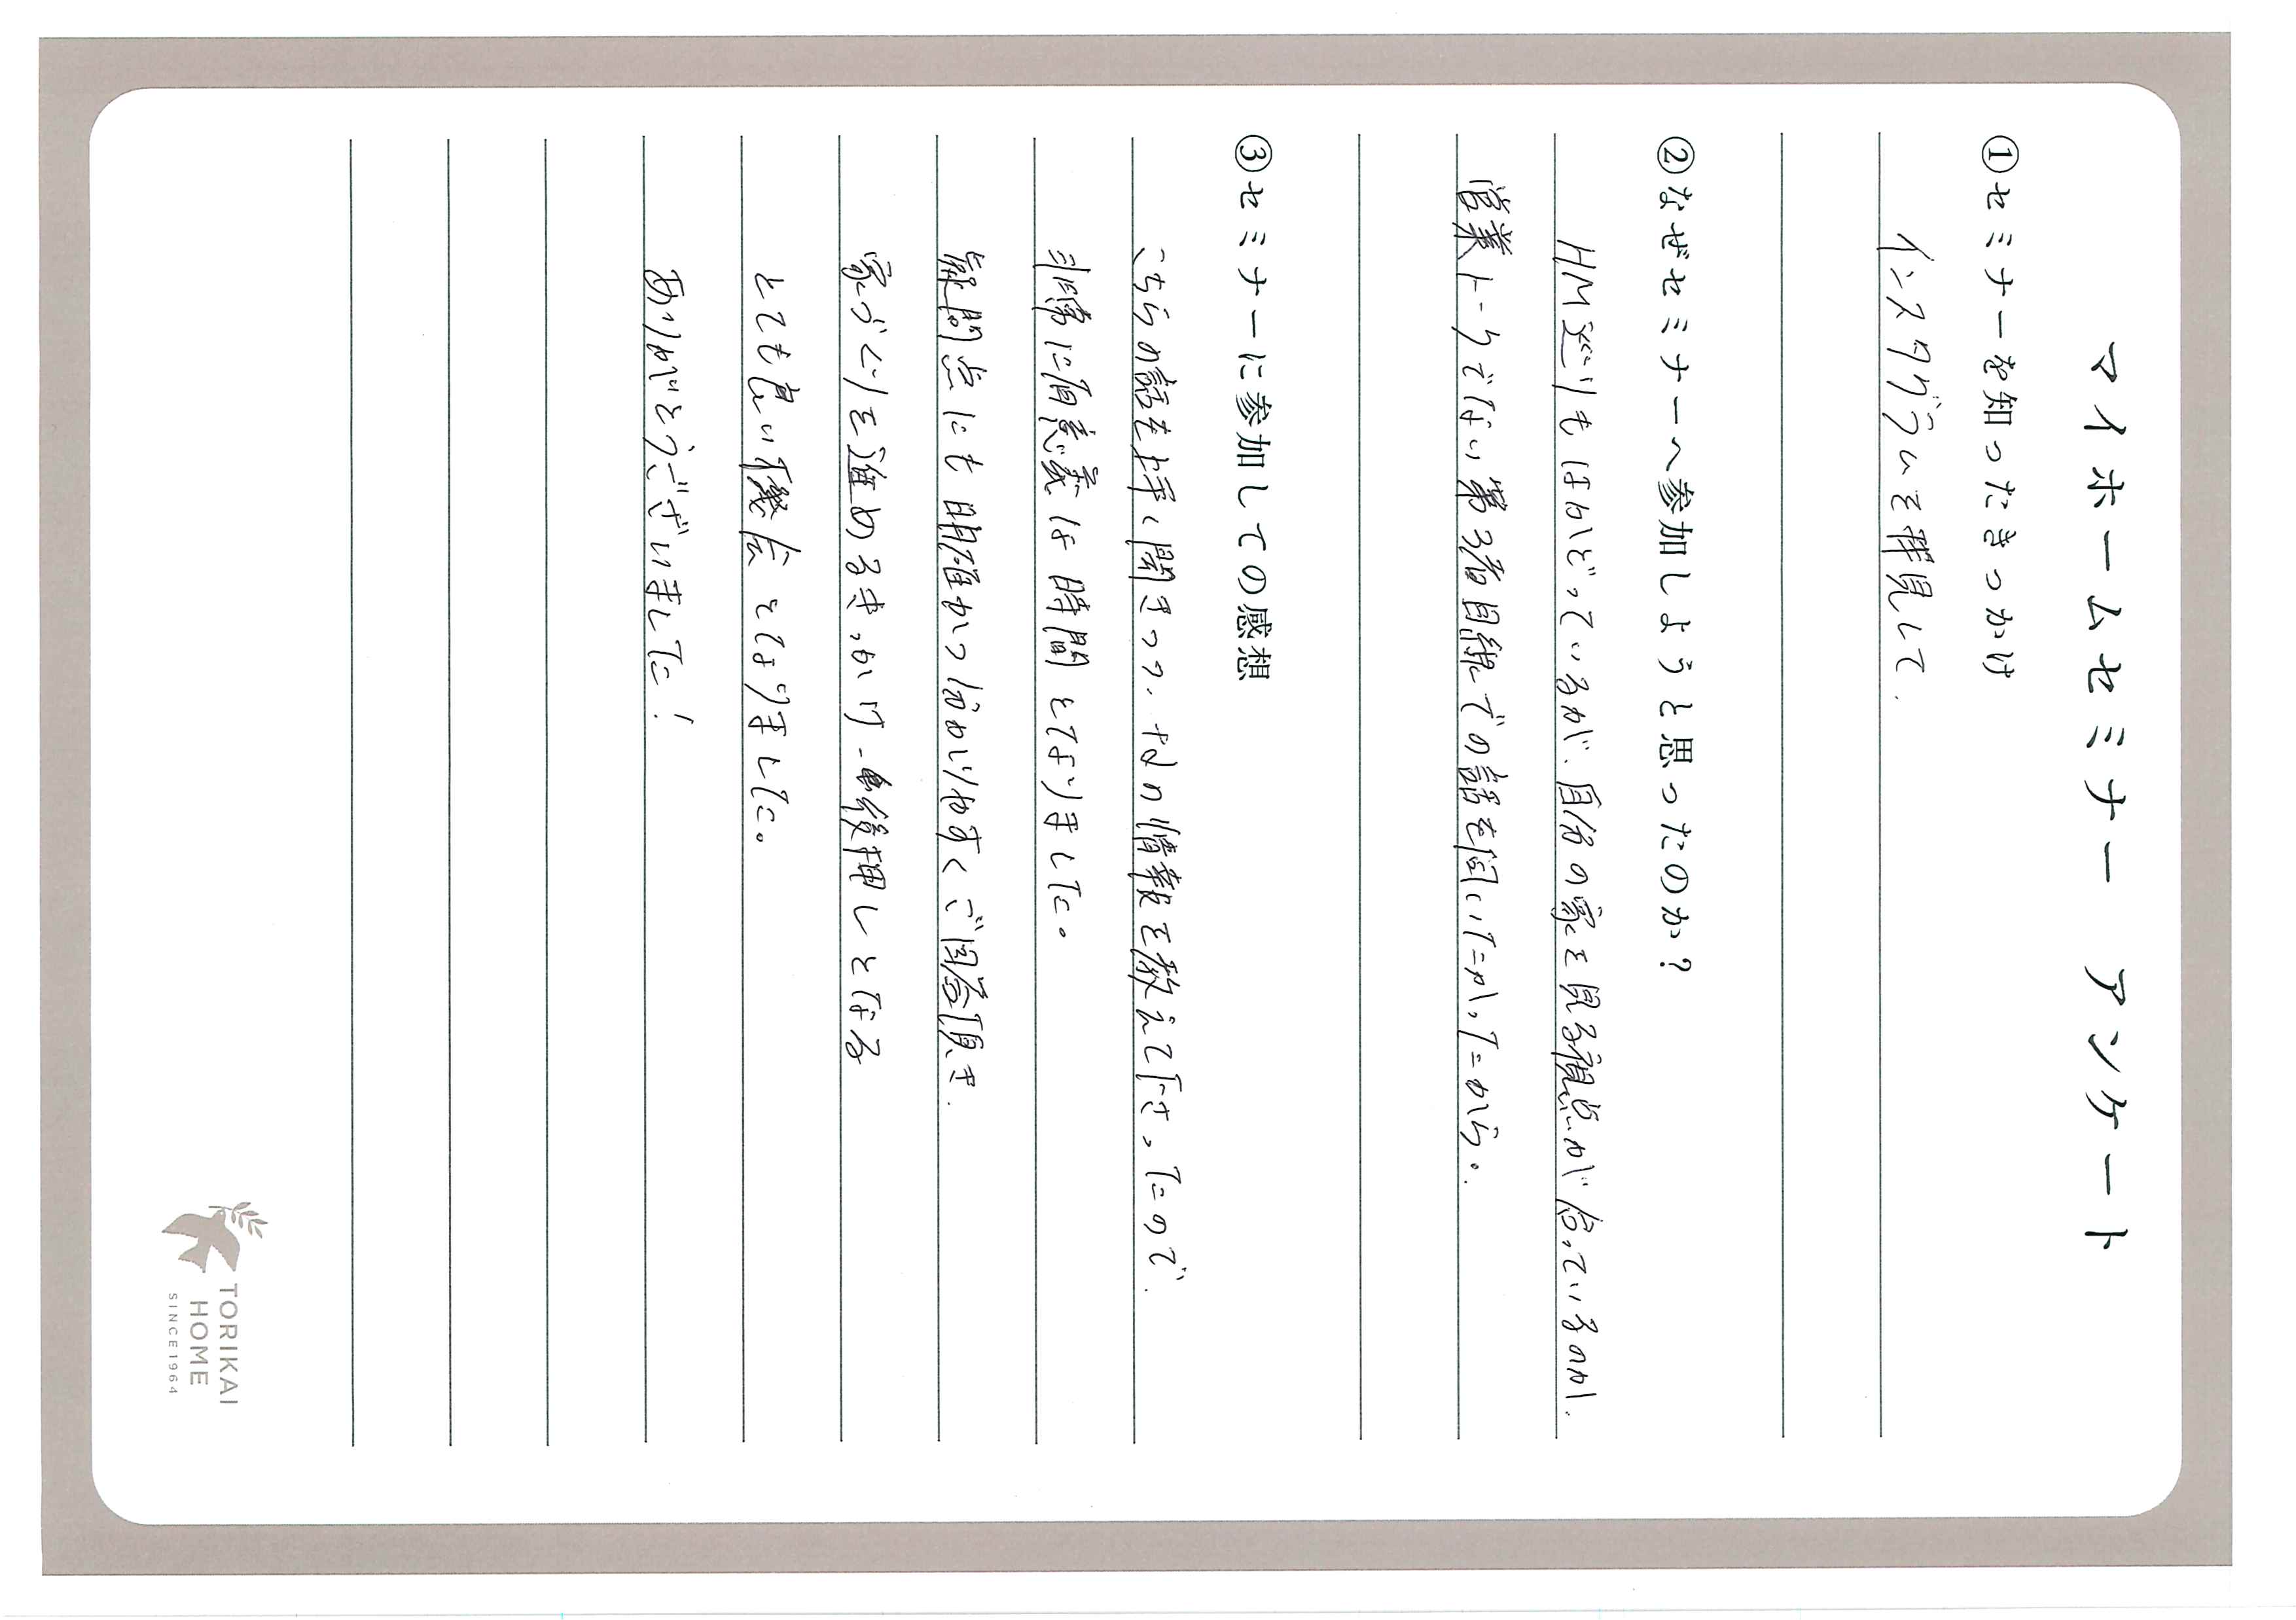 マイホームセミナー アンケート
①セミナーを知ったきっかけ
インスタグラムを拝見して.
②なぜセミナーへ参加しようと思ったのか？
HM選びもはかどっているが、自分の家を見る視点が合っているのか、
営業トークでない第3者目線での話を聞いたかったから。
③セミナーに参加しての感想
こちらの話を上手く聞きつつ、なの情報を教えて下さったので、
非常に有意義は時間となりました。
疑問点にも明確かつ分かりやすくご回答頂き、
家づくりを進めるきっかけ-後押しとなる
とても良い機会となりました。
ありがとうございました！
TORIKAI
HOME
SINCE1964